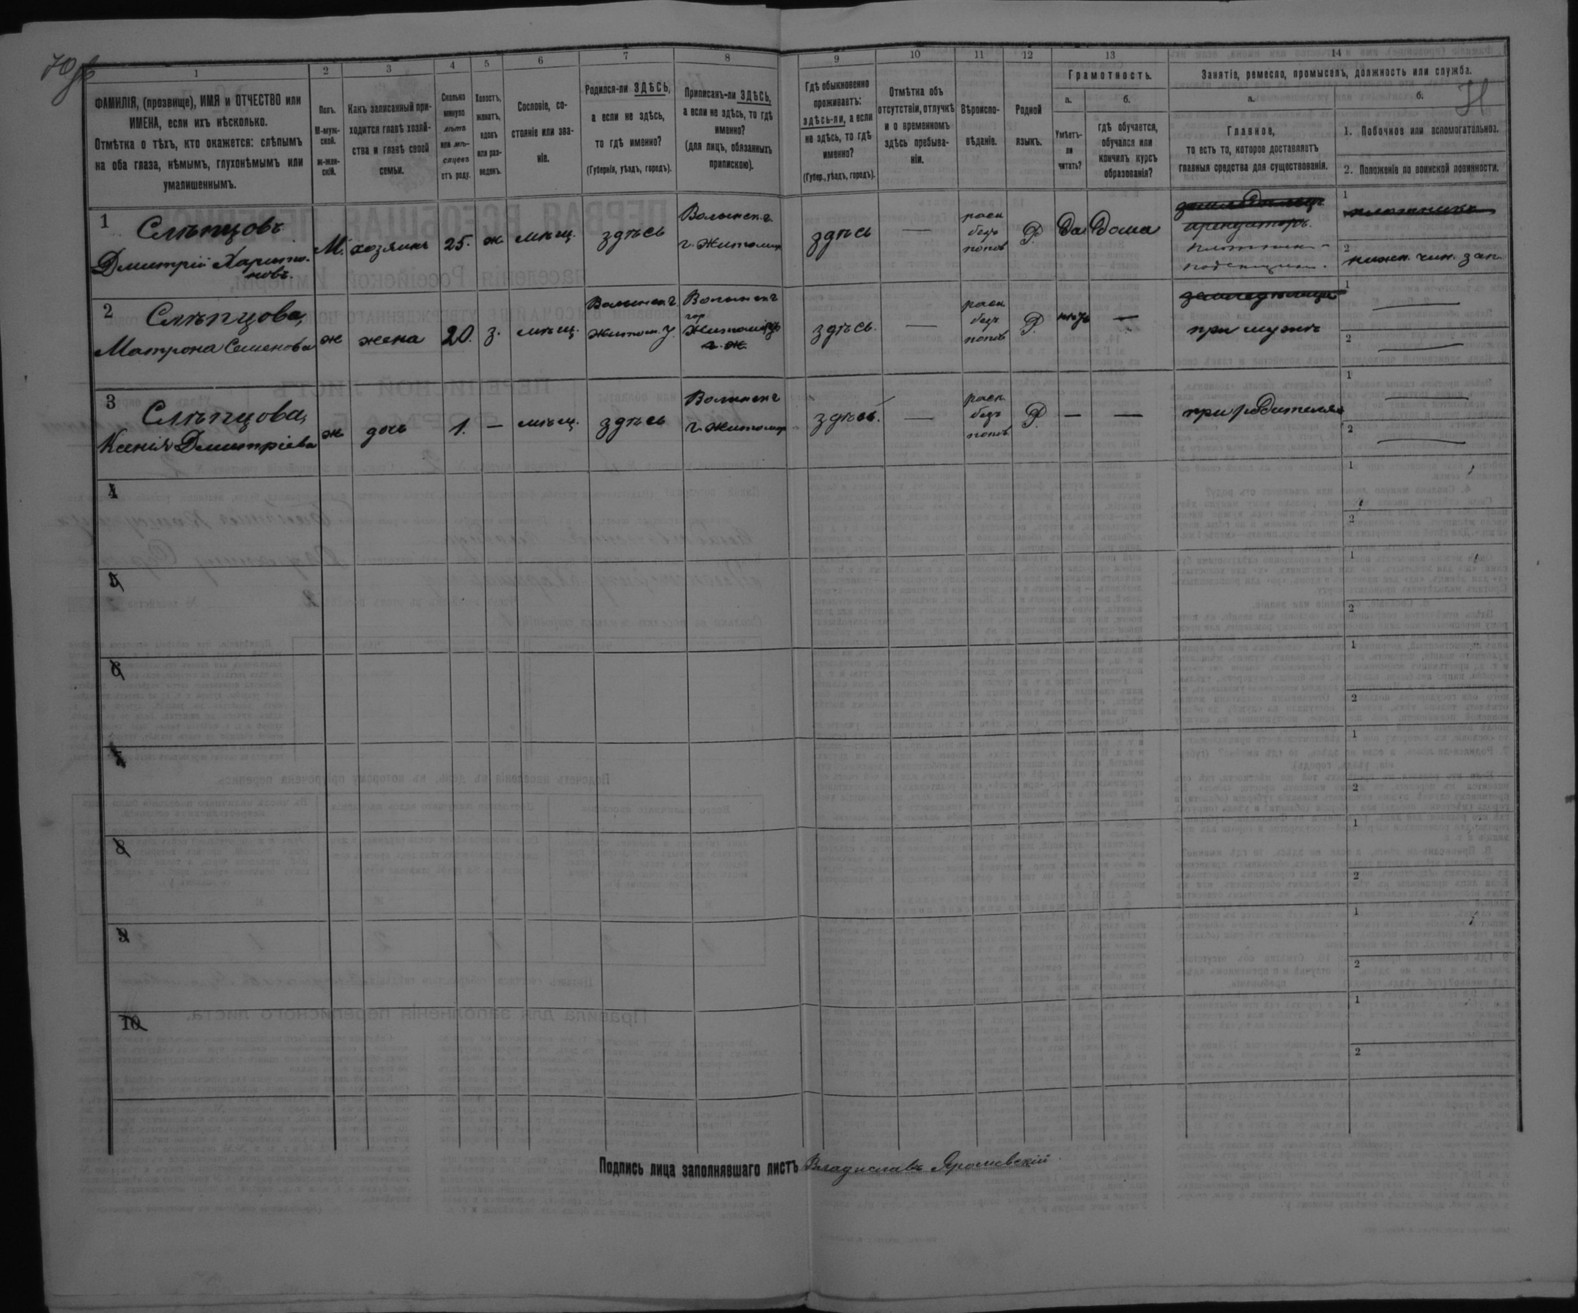 70об
71
1
2
3
4
5
6
7
8
9
10
11
12
13
14
ФАМИЛІЯ, (прозвище), ИМЯ и ОТЧЕСТВО или
ИМЕНА, если ихъ нѣсколько.
Отмѣтка о тѣхъ, кто окажется: слѣпымъ
на оба глаза, нѣмымъ, глухонѣмымъ или
умалишеннымъ.
Полъ.
М-муж-
ской.
ж-жен-
скій.
Какъ записанный при-
ходится главѣ хозяй-
ства и главѣ своей
семьи.
Сколько
минуло
лѣтъ
или мѣ-
сяцевъ
отъ роду.
Холостъ,
женатъ,
вдовъ
или раз-
веденъ.
Сословіе, со-
стояніе или зва-
ніе.
Родился-ли ЗДѢСЬ,
а если не здѣсь,
то гдѣ именно?
(Губернія, уѣздъ, городъ).
Приписанъ-ли ЗДѢСЬ,
а если не здѣсь, то гдѣ
именно?
(для лицъ, обязанныхъ
припискою).
Гдѣ обыкновенно
проживаетъ:
здѣсь-ли, а если
не здѣсь, то гдѣ
именно?
(Губер., уѣздъ, городъ).
Отмѣтка объ
отсутствіи, отлучкѣ
и о временномъ
здѣсь пребыва-
ніи.
Вѣроиспо-
вѣданіе.
Родной
языкъ.
Грамотность.
а.
б.
Умѣетъ-
ли
читать?
гдѣ обучается,
обучался или
кончилъ курсъ
образованія?
Занятія, ремесло, промыселъ, должность или служба.
а.
б.
Главное,
то есть то, которое доставляетъ
главныя средства для существованія.
1. Побочное или вспомогательное.
2. Положеніе по воинской повинности.
1
Слѣпцовъ
Дмитрій Харито-
новъ.
М.
хозяинъ
25.
ж
мѣщ.
здѣсь
Волынск г
г. Житомир
здѣсь
—
раск
безъ
попов
Р
Да
Дома
арендаторъ
1
2
нижн. чин. зап
2
Слѣпцова,
Матрона Семенова
ж
жена
20.
з.
мѣщ.
Волынск г
Житом. у
Волынск г
гор
Житоміръ
здѣсь.
—
раск
безъ
попов
Р
нѣтъ
—
при мужѣ
1
—
2
—
3
Слѣпцова,
Ксенія Дмитріева
ж
дочь
1.
—
мѣщ.
здѣсь
Волынск г
г. Житомир
здѣсь.
—
раск
безъ
попов
Р
—
—
при родителях
1
—
2
—
4
1
2
5
1
2
6
1
2
7
1
2
8
1
2
9
1
2
10
1
2
Подпись лица заполнявшаго листъ Владиславъ Ярошевскій